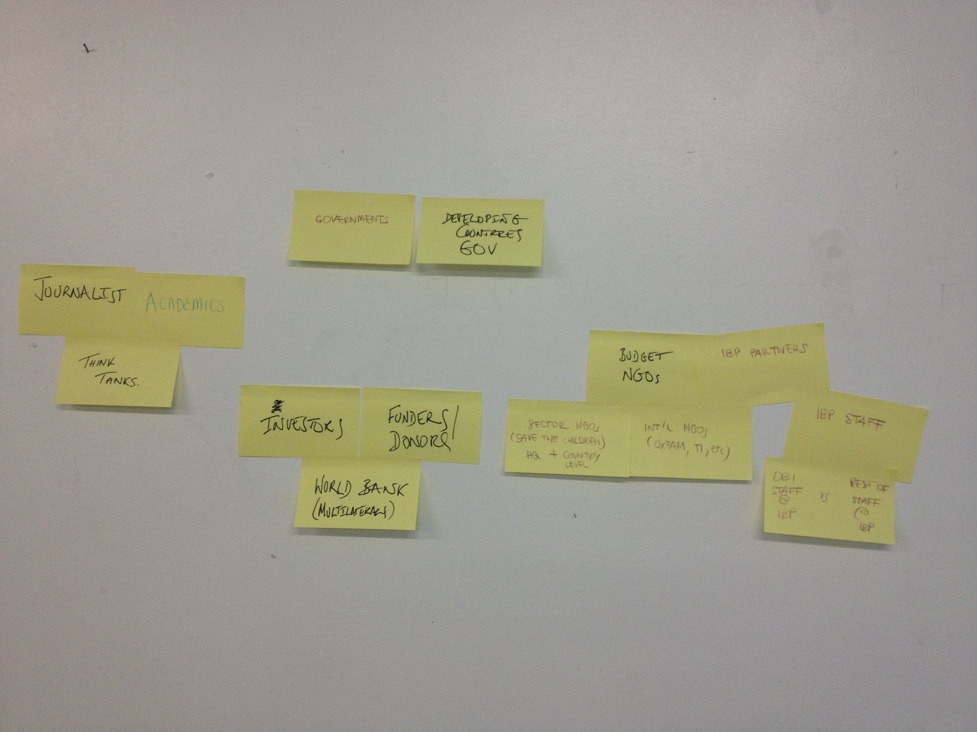 GOVERNMENTS
DEVELOPING
COUNTRIES
GOV
JOURNALIST
ACADEMICS
THINK
TANKS.
INVESTORS
FUNDERS/
DONORS
WORLD BANK
(MULTILATERAL)
BUDGET
NGOs
IBP PARTNERS
SECTOR NGOs
(SAVE THE CHILDREN)
HQ + COUNTRY
LEVEL
INT'L NGOs
(OXFAM, TI, ETC)
IBP STAFF
OBI
STAFF
@
IBP
VS
REST OF
STAFF
@
IBP